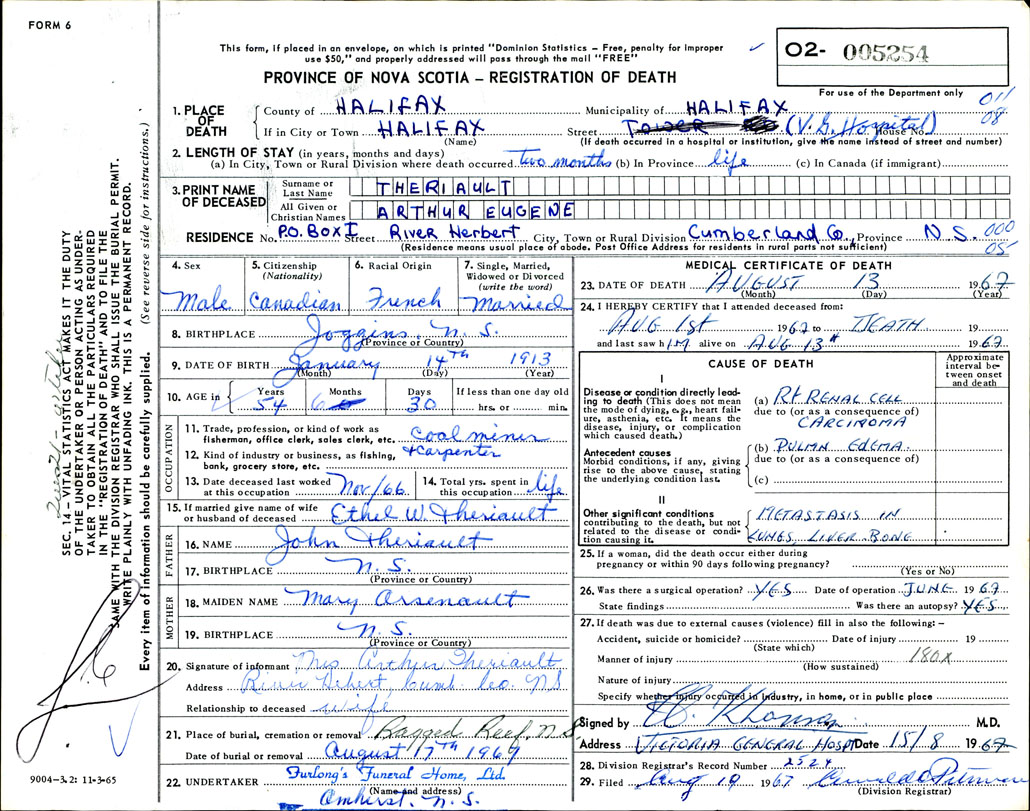 FORM 6
This form, if placed in an envelope, on which is printed "Dominion Statistics – Free, penalty for improper
use $50," and properly addressed will pass through the mail "FREE"
PROVINCE OF NOVA SCOTIA – REGISTRATION OF DEATH
O2- 005254
For use of the Department only
011
08
1. PLACE OF DEATH
County of HALIFAX Municipality of HALIFAX
If in City or Town HALIFAX Street (V.G. Hospital) House No.
(Name) (If death occurred in a hospital or institution, give the name instead of street and number)
2. LENGTH OF STAY (in years, months and days)
(a) In City, Town or Rural Division where death occurred two months (b) In Province life (c) In Canada (if immigrant)
3. PRINT NAME OF DECEASED
Surname or Last Name THERIAULT
All Given or Christian Names ARTHUR EUGENE
RESIDENCE No. P.O. BOX I Street River Herbert City, Town or Rural Division Cumberland Co., Province N.S. 000
(Residence means usual place of abode. Post Office Address for residents in rural parts not sufficient) 05
4. Sex
Male
5. Citizenship
(Nationality)
Canadian
6. Racial Origin
French
7. Single, Married,
Widowed or Divorced
(write the word)
Married
8. BIRTHPLACE Joggins, N.S.
(Province or Country)
9. DATE OF BIRTH January 14TH 1913
(Month) (Day) (Year)
10. AGE in Years Months Days If less than one day old
54 6 30 hrs. or min.
OCCUPATION
11. Trade, profession, or kind of work as
fisherman, office clerk, sales clerk, etc. Coal miner
12. Kind of industry or business, as fishing, + carpenter
bank, grocery store, etc.
13. Date deceased last worked
at this occupation Nov/66
14. Total yrs. spent in
this occupation life
15. If married give name of wife
or husband of deceased Ethel W. Theriault
FATHER
16. NAME John Theriault
17. BIRTHPLACE N.S.
(Province or Country)
MOTHER
18. MAIDEN NAME Mary Arsenault
19. BIRTHPLACE N.S.
(Province or Country)
20. Signature of informant Mrs Arthur Theriault
Address River Hebert, Cumb. Co. NS
Relationship to deceased wife
21. Place of burial, cremation or removal Ragged Reef, N.S
Date of burial or removal August 17TH 1967
22. UNDERTAKER Furlong's Funeral Home, Ltd.
(Name and address)
Amherst, N.S.
MEDICAL CERTIFICATE OF DEATH
23. DATE OF DEATH AUGUST 13 1967
(Month) (Day) (Year)
24. I HEREBY CERTIFY that I attended deceased from:
AUG 1st 1967 to DEATH 19
and last saw hIM alive on AUG 13th 1967
CAUSE OF DEATH
Approximate
interval be-
tween onset
and death
I
Disease or condition directly lead-
ing to death (This does not mean
the mode of dying, e.g., heart fail-
ure, asthenia, etc. It means the
disease, injury, or complication
which caused death.)
(a) Rt RENAL CELL
due to (or as a consequence of)
CARCINOMA
Antecedent causes
Morbid conditions, if any, giving
rise to the above cause, stating
the underlying condition last.
(b) PULMN EDEMA.
due to (or as a consequence of)
(c)
II
Other significant conditions
contributing to the death, but not
related to the disease or condi-
tion causing it.
METASTASIS IN
LUNGS, LIVER BONE
25. If a woman, did the death occur either during
pregnancy or within 90 days following pregnancy?
(Yes or No)
26. Was there a surgical operation? YES Date of operation JUNE 1967
State findings Was there an autopsy? YES
27. If death was due to external causes (violence) fill in also the following: –
Accident, suicide or homicide? Date of injury 19
(State which)
Manner of injury 180X
(How sustained)
Nature of injury
Specify whether injury occurred in industry, in home, or in public place
Signed by M.D.
Address VICTORIA GENERAL HOSPT Date 15/8 1967
28. Division Registrar's Record Number 2524
29. Filed Aug 19 1967
(Division Registrar)
SEC. 14 – VITAL STATISTICS ACT MAKES IT THE DUTY
OF THE UNDERTAKER OR PERSON ACTING AS UNDER-
TAKER TO OBTAIN ALL THE PARTICULARS REQUIRED
IN THE "REGISTRATION OF DEATH" AND TO FILE THE
SAME WITH THE DIVISION REGISTRAR WHO SHALL ISSUE THE BURIAL PERMIT.
WRITE PLAINLY WITH UNFADING INK. THIS IS A PERMANENT RECORD.
Every item of information should be carefully supplied. (See reverse side for instructions.)
9004-3.2: 11-3-65